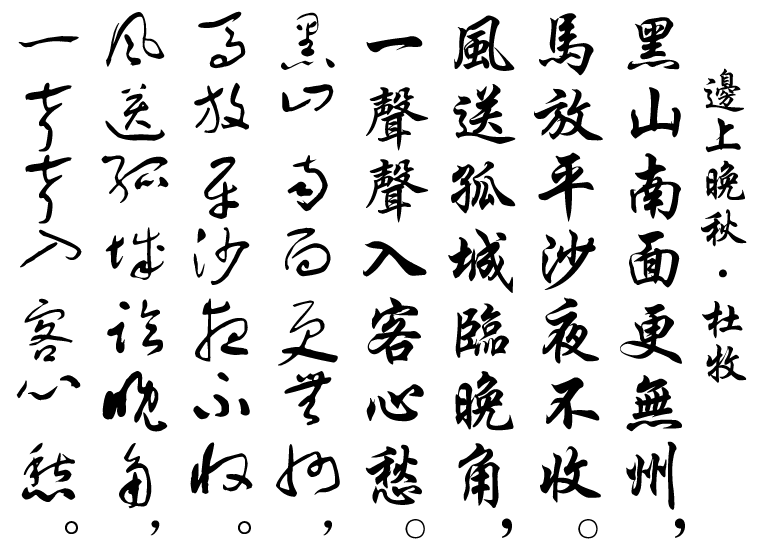 邊上晚秋·杜牧
黑山南面更無州，
馬放平沙夜不收。
風送孤城臨晚角，
一聲聲入客心愁。
黑山南面更無州，
馬放平沙夜不收。
風送孤城臨晚角，
一聲聲入客心愁。